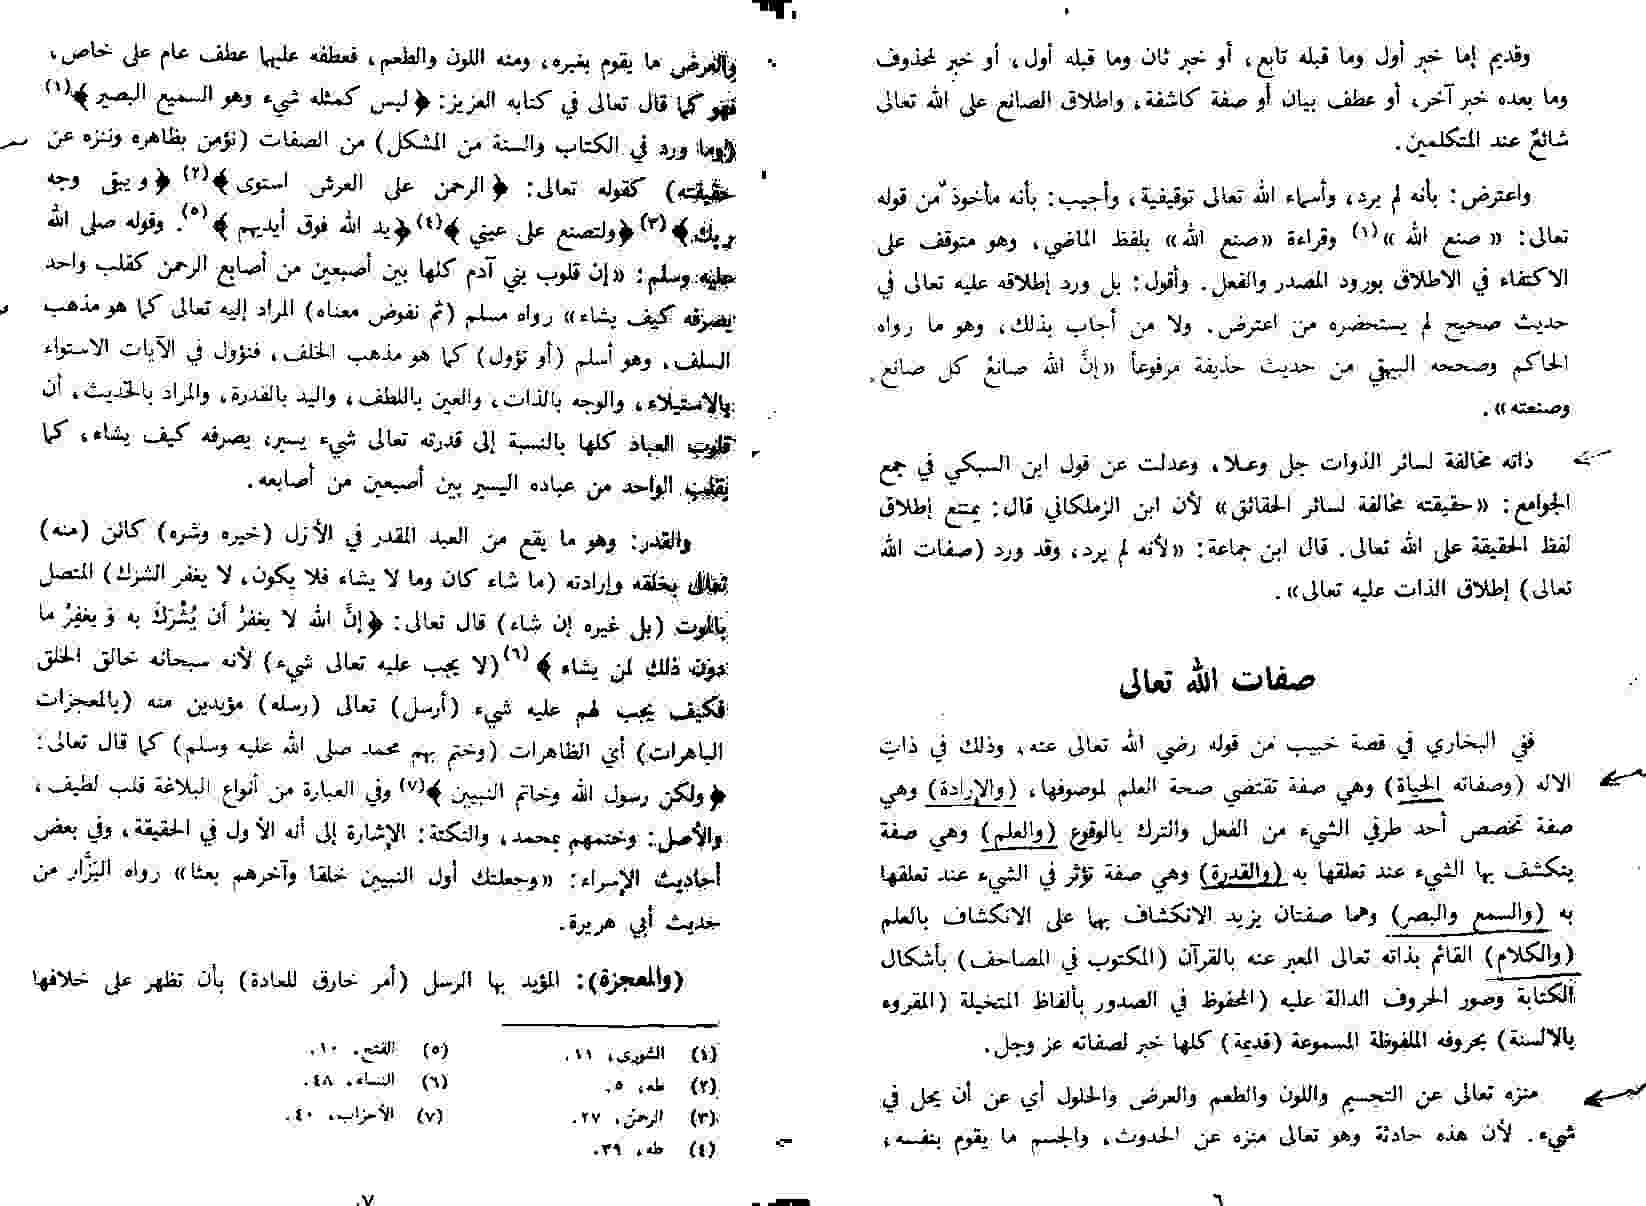 وقديم إما خبر أول وما قبله تابع، أو خبر ثان وما قبله أول، أو خبر لمحذوف
وما بعده خبر آخر، أو عطف بيان أو صفة كاشفة، واطلاق الصانع على الله تعالى
شائعٌ عند المتكلمين.
واعترض: بأنه لم يرد، وأسماء الله تعالى توقيفية، وأجيب: بأنه مأخوذ من قوله
تعالى: « صنع الله »(١) وقراءة «صنع الله» بلفظ الماضي، وهو متوقف على
الاكتفاء في الاطلاق بورود المصدر والفعل. وأقول: بل ورد إطلاقه عليه تعالى في
حديث صحيح لم يستحضره من اعترض. ولا من أجاب بذلك، وهو ما رواه
الحاكم وصححه البيهقي من حديث حذيفة مرفوعاً «إنَّ الله صانعُ كل صانع
وصنعته».
ذاته مخالفة لسائر الذوات جلى وعلا، وعدلت عن قول ابن السبكي في جمع
الجوامع: «حقيقته مخالفة لسائر الحقائق» لأن ابن الزملكاني قال: يمتنع إطلاق
لفظ الحقيقة على الله تعالى. قال ابن جماعة: «لأنه لم يرد، وقد ورد (صفات الله
تعالى) إطلاق الذات عليه تعالى».
صفات الله تعالى
ففي البخاري في قصة خبيب من قوله رضي الله تعالى عنه، وذلك في ذات
الاله (وصفاته الحياة) وهي صفة تقتضي صحة العلم لموصوفها، (والإرادة) وهي
صفة تخصص أحد طرفي الشيء من الفعل والترك بالوقوع (والعلم) وهي صفة
ينكشف بها الشيء عند تعلقها به (والقدرة) وهي صفة تؤثر في الشيء عند تعلقها
به (والسمع والبصر) وهما صفتان يزيد الانكشاف بهما على الانكشاف بالعلم
(والكلام) القائم بذاته تعالى المعبر عنه بالقرآن (المكتوب في المصاحف) بأشكال
الكتابة وصور الحروف الدالة عليه (المحفوظ في الصدور بألفاظ المتخيلة (المقروء
بالالسنة) بحروفه الملفوظة المسموعة (قديمة) كلها خبر لصفاته عز وجل.
منزه تعالى عن التجسيم واللون والطعم والعرض والحلول أي عن أن يحل في
شيء. لأن هذه حادثة وهو تعالى منزه عن الحدوث، والجسم ما يقوم بنفسه،
٦
والعرض ما يقوم بغيره، ومنه اللون والطعم، فعطفه عليهما عطف عام على خاص،
فهو كما قال تعالى في كتابه العزيز: ﴿ليس كمثله شيء وهو السميع البصير﴾(١)
(وما ورد في الكتاب والسنة من المشكل) من الصفات (نؤمن بظاهره وننزه عن
حقيقته) كقوله تعالى: ﴿الرحمن على العرش استوى﴾(٢) ﴿ويبقى وجه
ربك﴾(٣) ﴿ولتصنع على عيني﴾(٤) ﴿يد الله فوق أيديهم﴾(٥). وقوله صلى الله
عليه وسلم: «إن قلوب بني آدم كلها بين أصبعين من أصابع الرحمن كقلب واحد
يصرفه كيف يشاء» رواه مسلم (ثم نفوض معناه) المراد إليه تعالى كما هو مذهب
السلف، وهو أسلم (أو نؤول) كما هو مذهب الخلف، فنؤول في الآيات الاستواء
بالاستيلاء، والوجه بالذات، والعين باللطف، واليد بالقدرة، والمراد بالحديث، أن
قلوب العباد كلها بالنسبة إلى قدرته تعالى شيء يسير، يصرفه كيف يشاء، كما
يقلب الواحد من عباده اليسير بين أصبعين من أصابعه.
والقدر: وهو ما يقع من العبد المقدر في الأزل (خيره وشره) كائن (منه)
تعالى بخلقه وإرادته (ما شاء كان وما لا يشاء فلا يكون، لا يغفر الشرك) المتصل
بالموت (بل غيره إن شاء) قال تعالى: ﴿إنَّ الله لا يغفرُ أن يُشْرَكَ به ويغفِرُ ما
دون ذلك لمن يشاء﴾(٦) (لا يجب عليه تعالى شيء) لأنه سبحانه خالق الخلق
فكيف يجب لهم عليه شيء (أرسل) تعالى (رسله) مؤيدين منه (بالمعجزات
الباهرات) أي الظاهرات (وختم بهم محمد صلى الله عليه وسلم) كما قال تعالى:
﴿ولكن رسول الله وخاتم النبيين﴾(٧) وفي العبارة من أنواع البلاغة قلب لطيف،
والأصل: وختمهم بمحمد، والنكتة: الإشارة إلى أنه الأول في الحقيقة، وفي بعض
أحاديث الإسراء: «وجعلتك أول النبيين خلقا وآخرهم بعثا» رواه البَزَّار من
حديث أبي هريرة.
(والمعجزة): المؤيد بها الرسل (أمر خارق للعادة) بأن تظهر على خلافها
(١) الشورى، ١١.
(٢) طه، ٥.
(٣) الرحمن، ٢٧.
(٤) طه، ٣٩.
(٥) الفتح، ١٠.
(٦) النساء، ٤٨.
(٧) الأحزاب، ٤٠.
٧